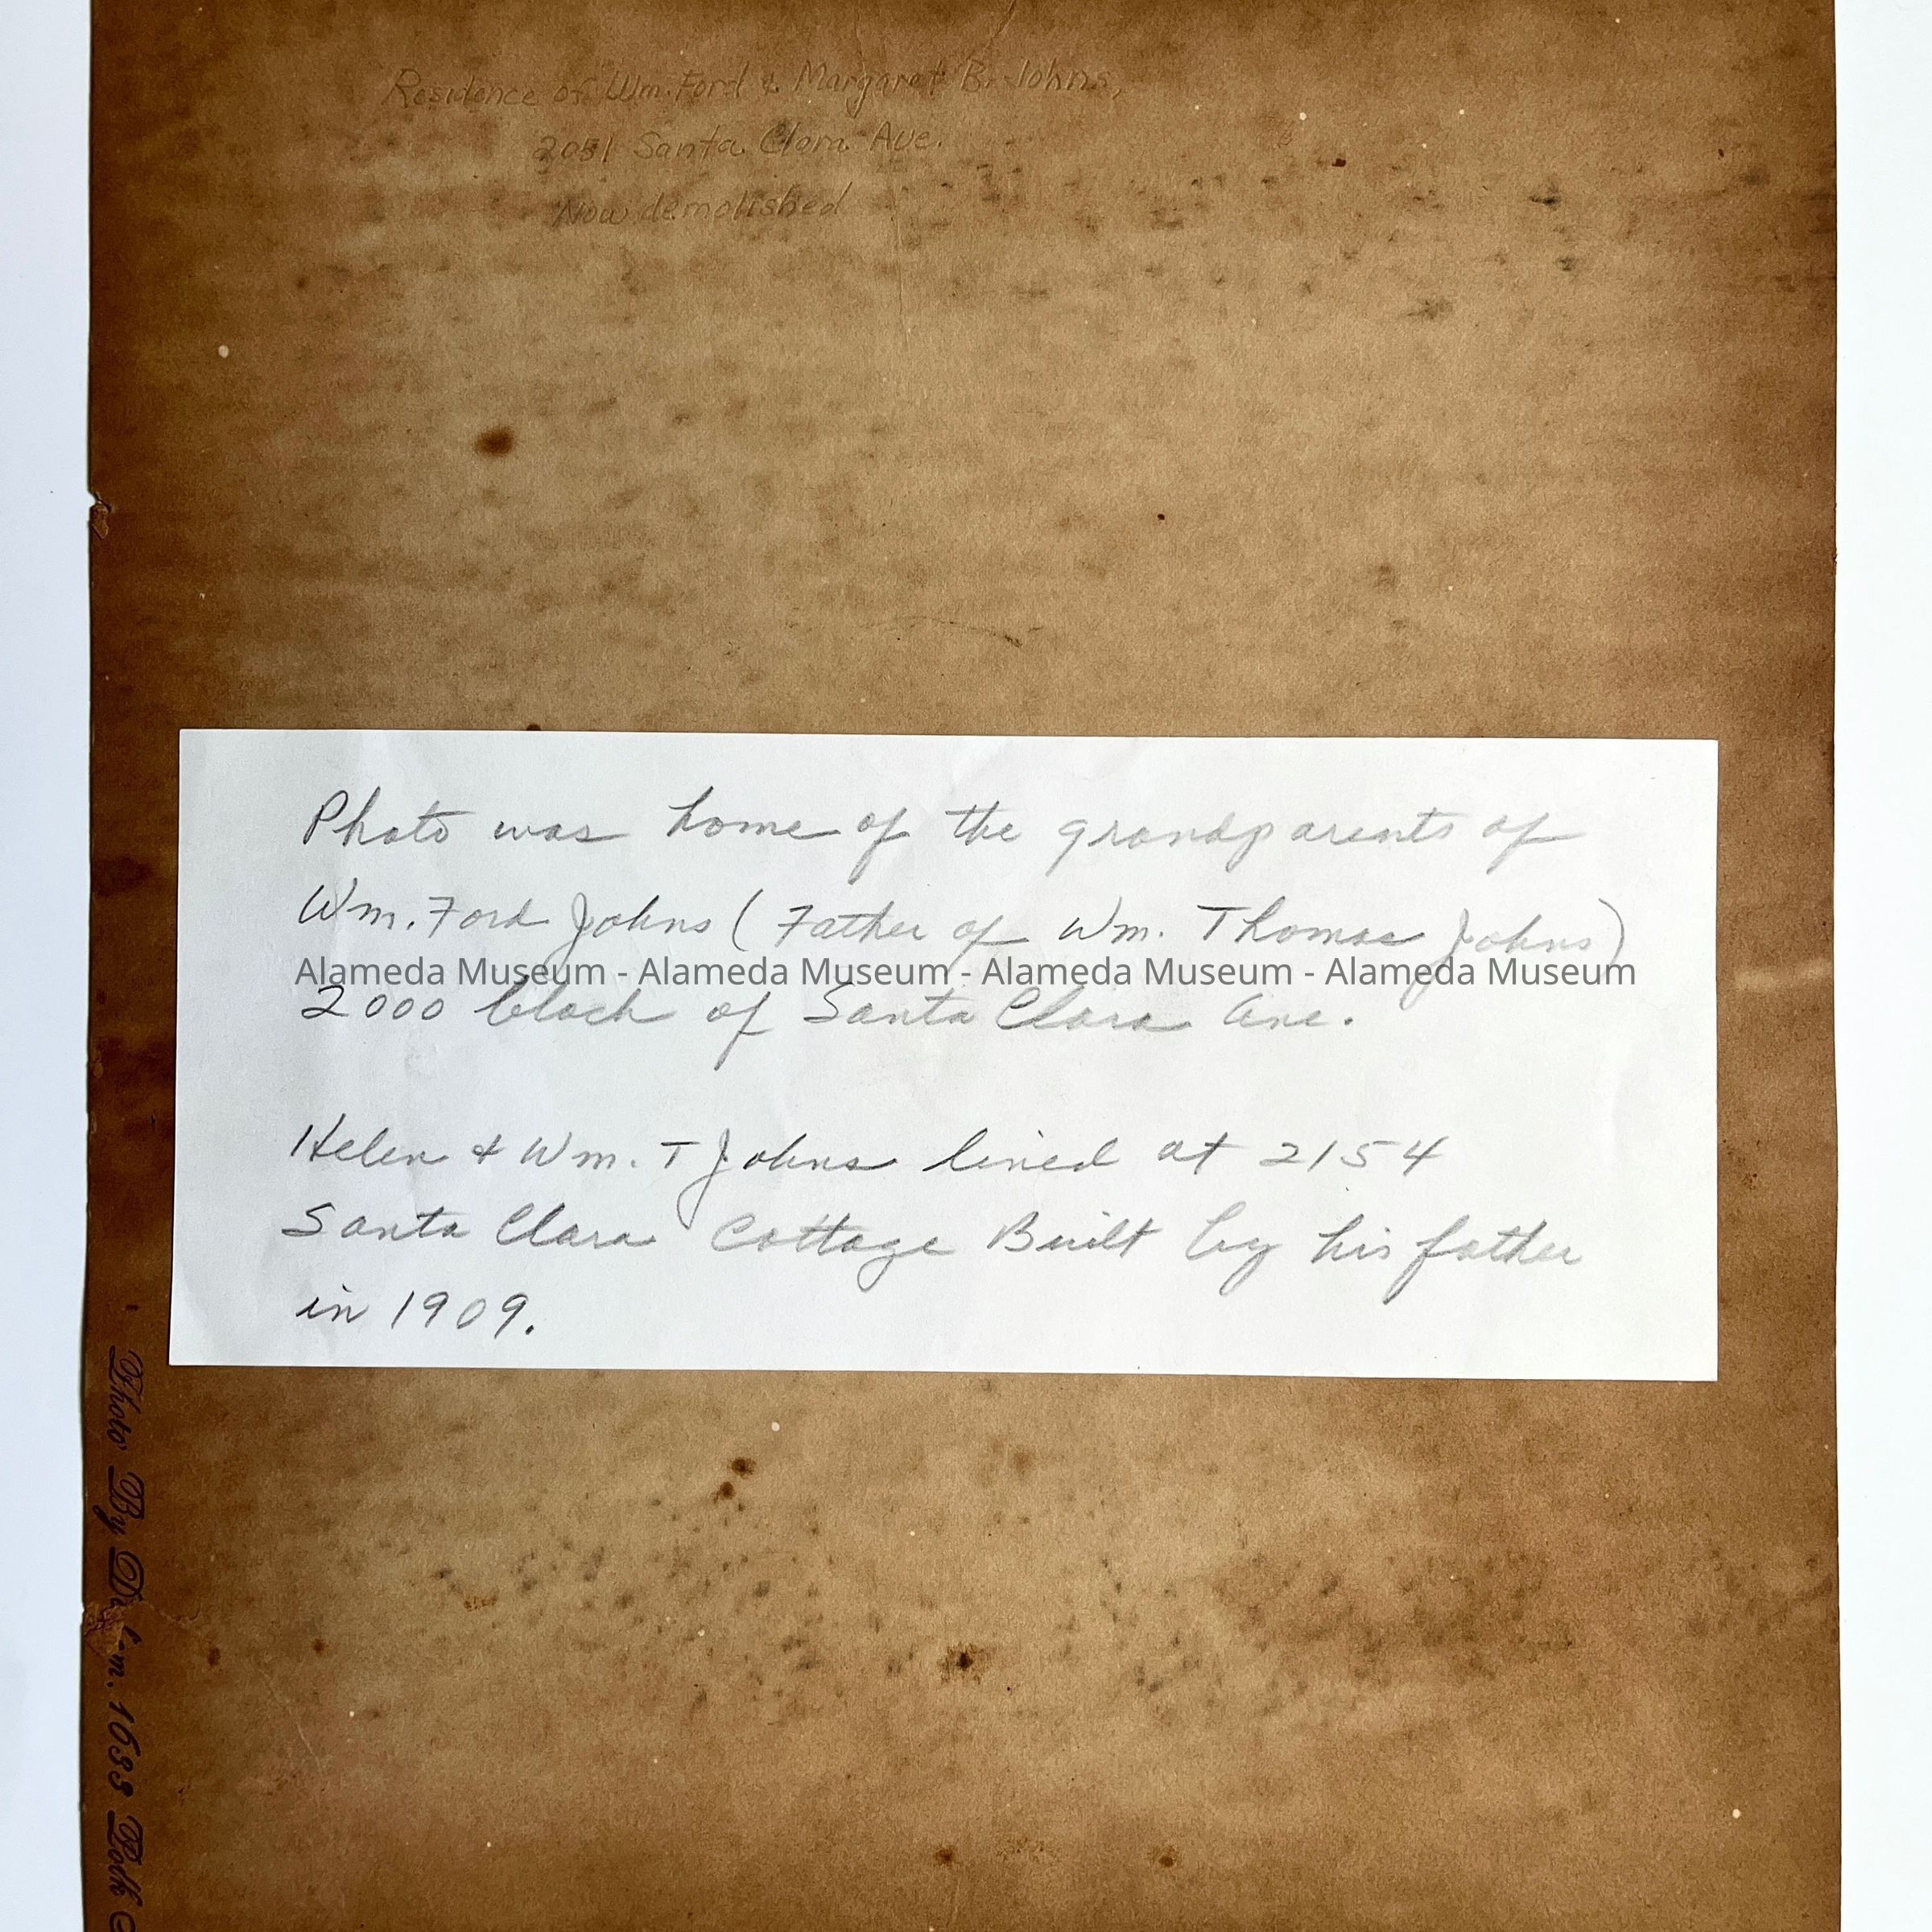 Residence of Wm. Ford & Margaret B. Johns,
2051 Santa Clara Ave.
Now demolished
Photo was home of the grandparents of
Wm. Ford Johns (Father of Wm. Thomas Johns)
Alameda Museum - Alameda Museum - Alameda Museum - Alameda Museum
2000 block of Santa Clara Ave.
Helen & Wm. T Johns lived at 2154
Santa Clara Cottage Built by his father
in 1909.
Photo By 1633 Polk